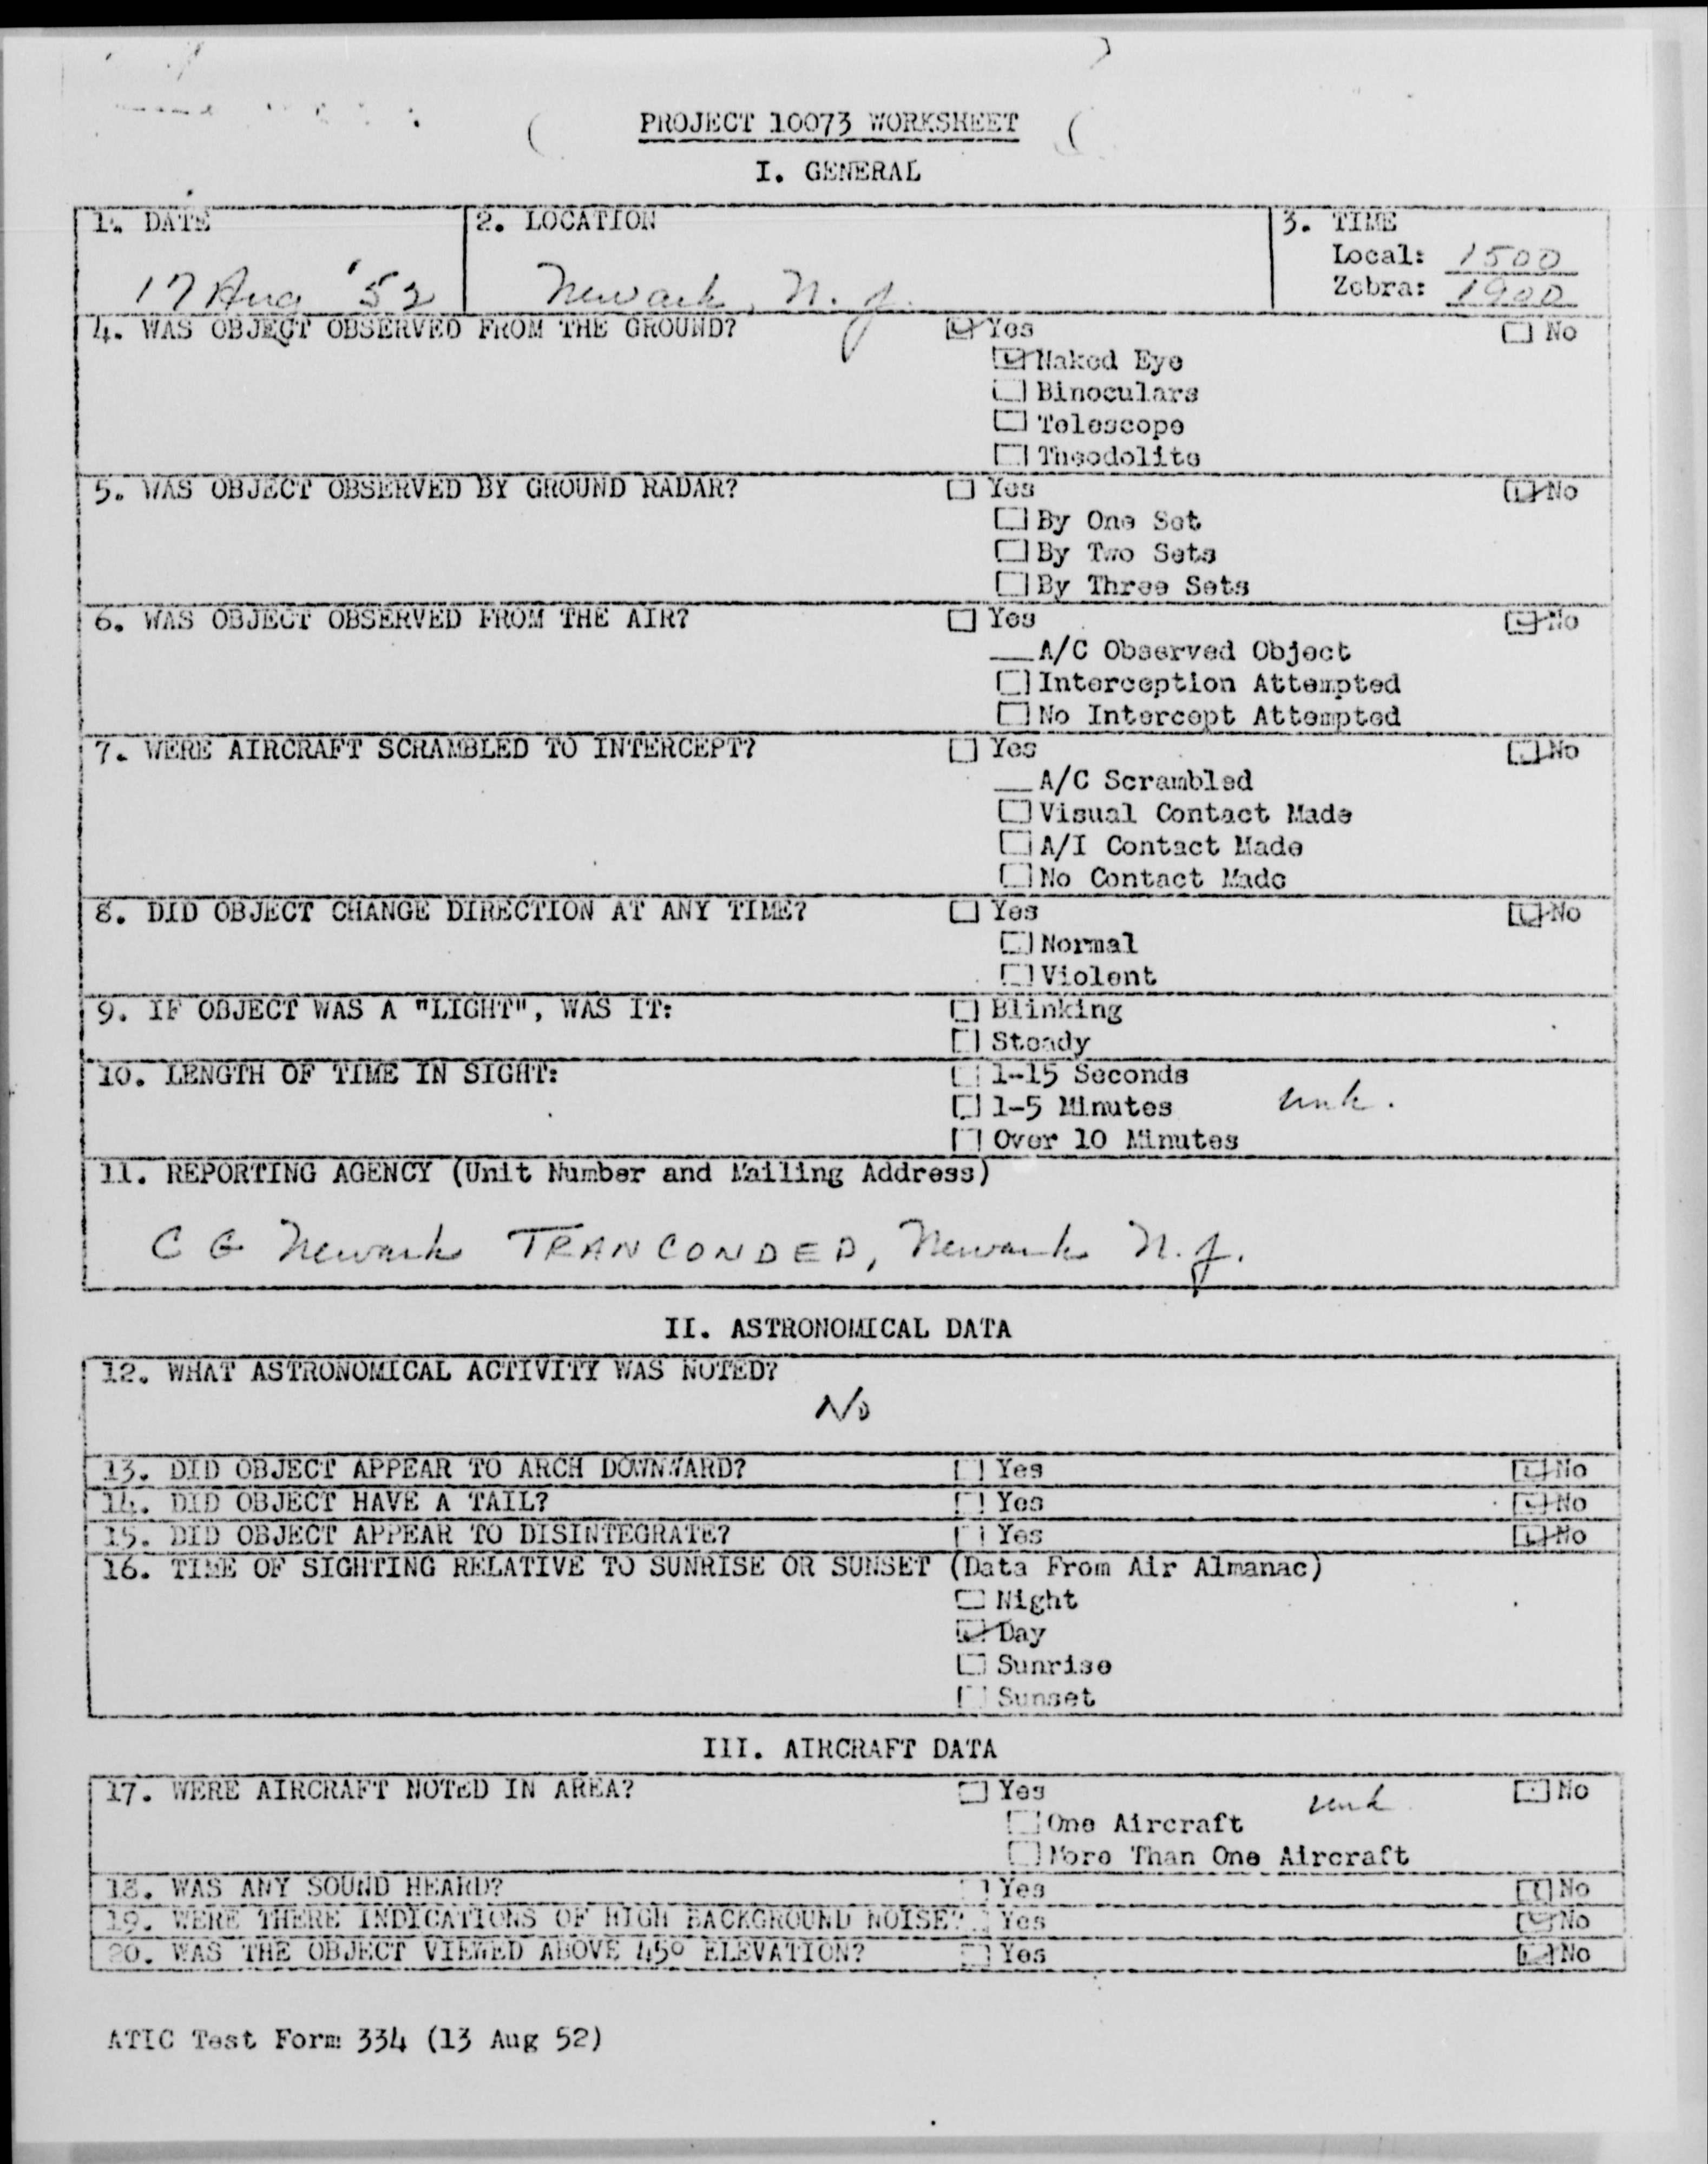 PROJECT 10073 WORKSHEET
I. GENERAL
1. DATE 2. LOCATION 3. TIME
Local: 1500
17 Aug '52 Newark, N. J. Zebra: 1900
4. WAS OBJECT OBSERVED FROM THE GROUND? Yes No
Naked Eye
Binoculars
Telescope
Theodolite
5. WAS OBJECT OBSERVED BY GROUND RADAR? Yes No
By One Set
By Two Sets
By Three Sets
6. WAS OBJECT OBSERVED FROM THE AIR? Yes No
A/C Observed Object
Interception Attempted
No Intercept Attempted
7. WERE AIRCRAFT SCRAMBLED TO INTERCEPT? Yes No
A/C Scrambled
Visual Contact Made
A/I Contact Made
No Contact Made
8. DID OBJECT CHANGE DIRECTION AT ANY TIME? Yes No
Normal
Violent
9. IF OBJECT WAS A "LIGHT", WAS IT: Blinking
Steady
10. LENGTH OF TIME IN SIGHT: 1-15 Seconds
1-5 Minutes unk.
Over 10 Minutes
11. REPORTING AGENCY (Unit Number and Mailing Address)
C G Newark TRANCONDED, Newark N. J.
II. ASTRONOMICAL DATA
12. WHAT ASTRONOMICAL ACTIVITY WAS NOTED?
No
13. DID OBJECT APPEAR TO ARCH DOWNWARD? Yes No
14. DID OBJECT HAVE A TAIL? Yes No
15. DID OBJECT APPEAR TO DISINTEGRATE? Yes No
16. TIME OF SIGHTING RELATIVE TO SUNRISE OR SUNSET (Data From Air Almanac)
Night
Day
Sunrise
Sunset
III. AIRCRAFT DATA
17. WERE AIRCRAFT NOTED IN AREA? Yes unk No
One Aircraft
More Than One Aircraft
18. WAS ANY SOUND HEARD? Yes No
19. WERE THERE INDICATIONS OF HIGH BACKGROUND NOISE? Yes No
20. WAS THE OBJECT VIEWED ABOVE 45° ELEVATION? Yes No
ATIC Test Form 334 (13 Aug 52)